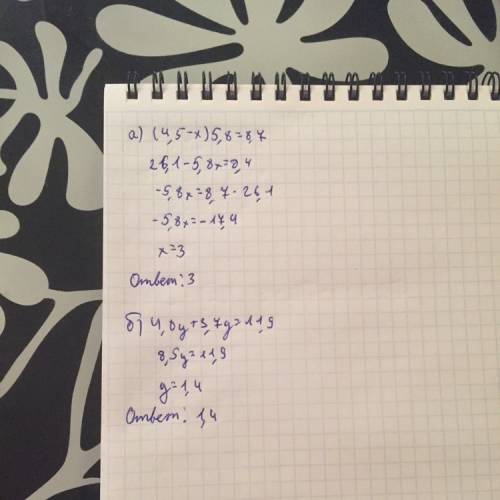 а) (4,5-x)5,8=8,7
26,1-5,8x=8,4
-5,8x=8,7-26,1
-5,8x=-17,4
x=3
Ответ: 3
б) 4,8y+3,7y=11,9
8,5y=11,9
y=1,4
Ответ: 1,4